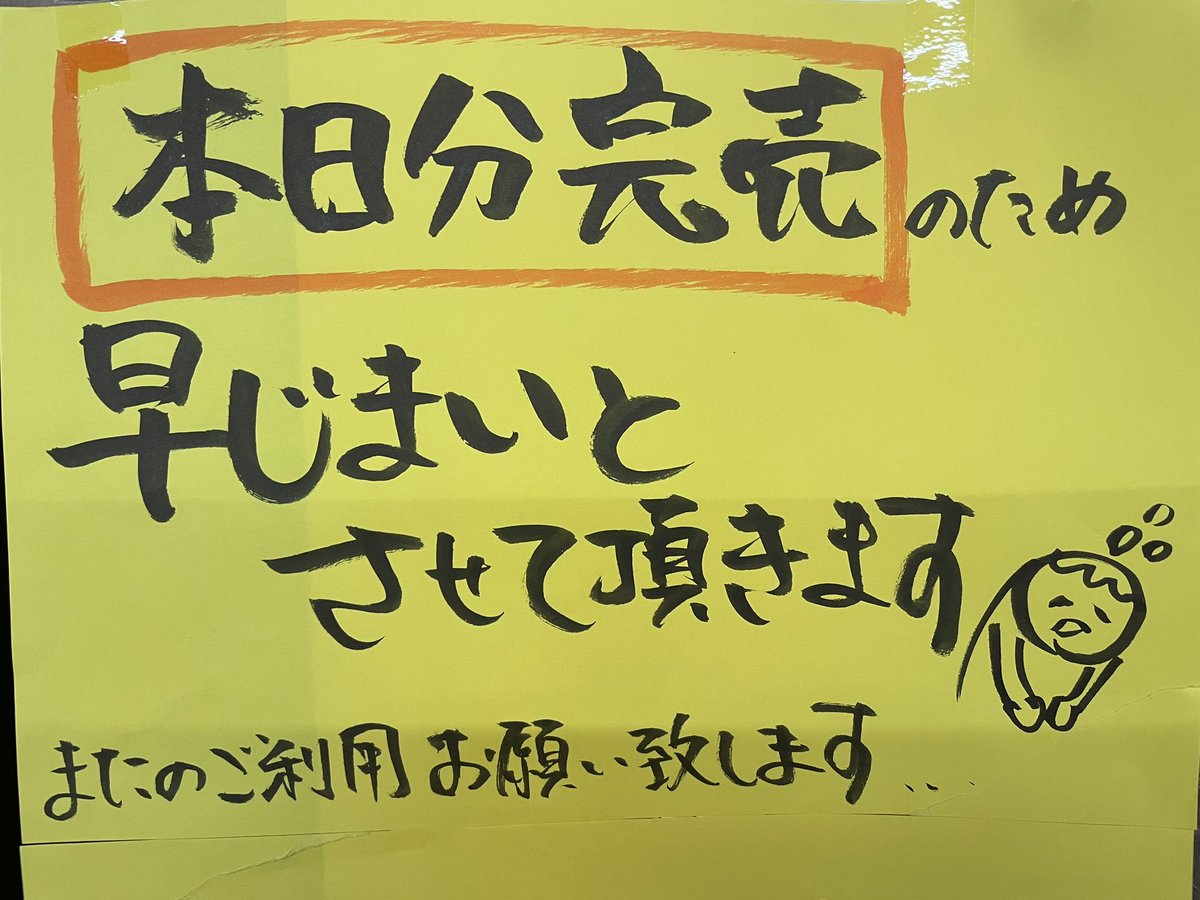 本日分完売のため
早じまいと
させて頂きます
またのご利用お願い致します...